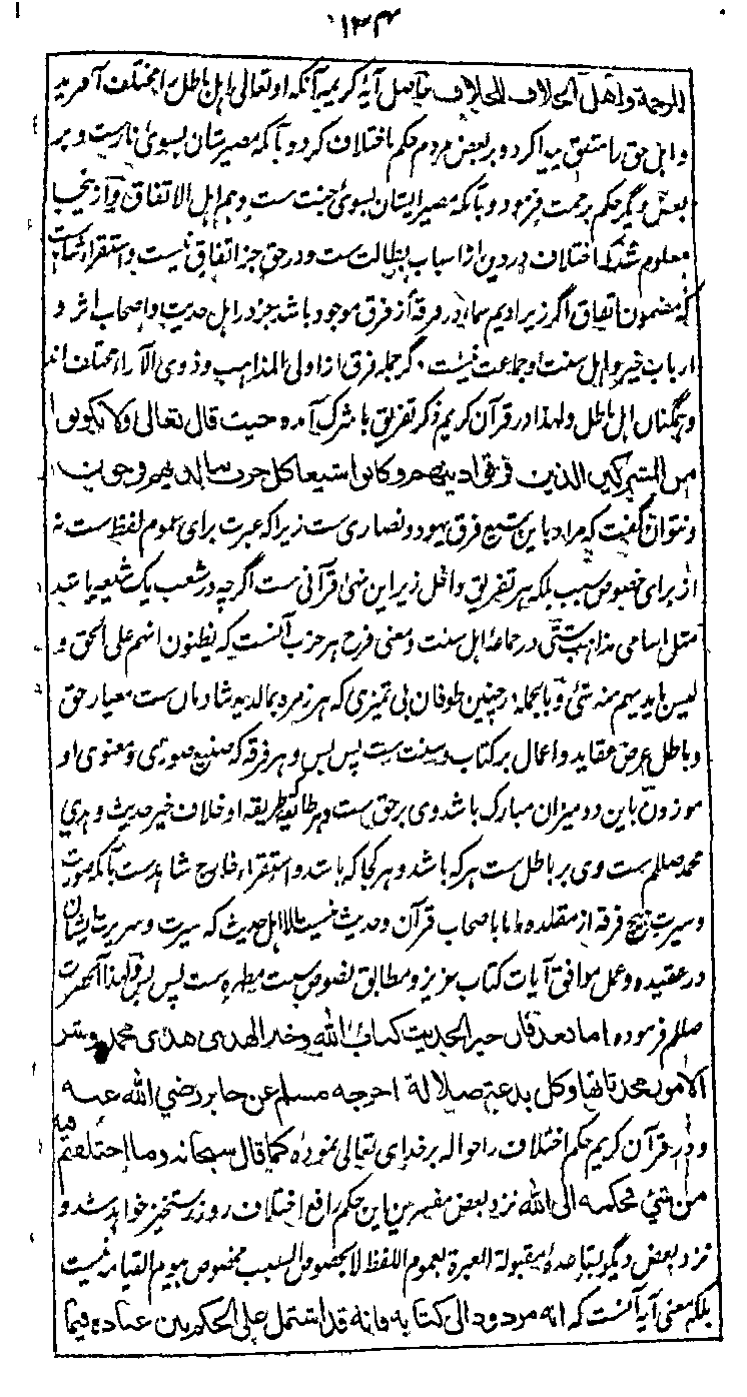 ۱۳۴
للرحمة واهل الخلاف للخلاف حاصل آیهٔ کریمه آنکه او تعالی اهل باطل را مختلف آفرید
و اهل حق را متفق پیدا کرد و بر بعض مردم حکم باختلاف کرد و بآنکه مصیرشان بسوی نارست و بر
بعض دیگر حکم برحمت فرمود و بآنکه مصیر ایشان بسوی جنت ست و هم اهل الاتفاق و ازینجا
معلوم شد که اختلاف در دین از اسباب بطالت ست و در حق جز اتفاق نیست و استقراء شاهدست
که مضمون اتفاق اگر زیر ادیم سماء در فرقهٔ از فرق موجود باشد جز در اهل حدیث و اصحاب اثر و
ارباب خبر و اهل سنت و جماعت نیست دگر جمله فرق از اولی المذاهب و ذوی الآراء مختلف اند
و همگنان اهل باطل و لهذا در قرآن کریم ذکر تفریق با شرک آمده حیث قال تعالی ولا تکونوا
من المشرکین الذین فرقوا دینهم وکانوا شیعا کل حزب بما لدیهم فرحون
و نتوان گفت که مراد باین شیع فرق یهود و نصاری ست زیرا که عبرت برای عموم لفظ ست نه
از برای خصوص سبب بلکه هر تفریق داخل زیر این نهی قرآنی ست اگرچه در شعب یک شیعه باشد
مثل اسامی مذاهب شتی در جماعهٔ اهل سنت و معنی فرح هر حزب آنست که یظنون انهم علی الحق و
لیس بایدیهم منه شئ و بالجمله در چنین طوفان بی تمیزی که هر زمره بما لدیه شادمان ست معیار حق
و باطل عرض عقاید و اعمال بر کتاب و سنت ست پس بس و هر فرقه که صنیع صوری و معنوی او
موزون باین دو میزان مبارک باشد وی بر حق ست و هر طائفه که طریقهٔ او خلاف خیر حدیث و هدی
محمد صلعم ست وی بر باطل ست هر که باشد و هر کجا که باشد و استقراء خارج شاهدست بآنکه صورت
و سیرت هیچ فرقه از مقلده ماما با صحاب قرآن و حدیث نیست الا اهل حدیث که سیرت و سریرت ایشان
در عقیده و عمل موافق آیات کتاب عزیز و مطابق نصوص سنت مطهره ست پس بس و لهذا آنحضرت
صلعم فرموده اما بعد فان خیر الحدیث کتاب الله وخیر الهدی هدی محمد وشر
الامور محدثاتها وکل بدعة ضلالة اخرجه مسلم عن جابر رضی الله عنه
و در قرآن کریم حکم اختلاف را حواله بر خدای تعالی نموده کما قال سبحانه وما اختلفتم فیه
من شئ فحکمه الی الله نزد بعض مفسرین این حکم رافع اختلاف روز رستخیز خواهد شد و
نزد بعض دیگر بقاعدهٔ مقبولة العبرة بعموم اللفظ لا بخصوص السبب مخصوص بیوم القیامه نیست
بلکه معنی آیه آنست که انه مردود الی کتابه فانه قد اشتمل علی الحکم بین عباده فیما